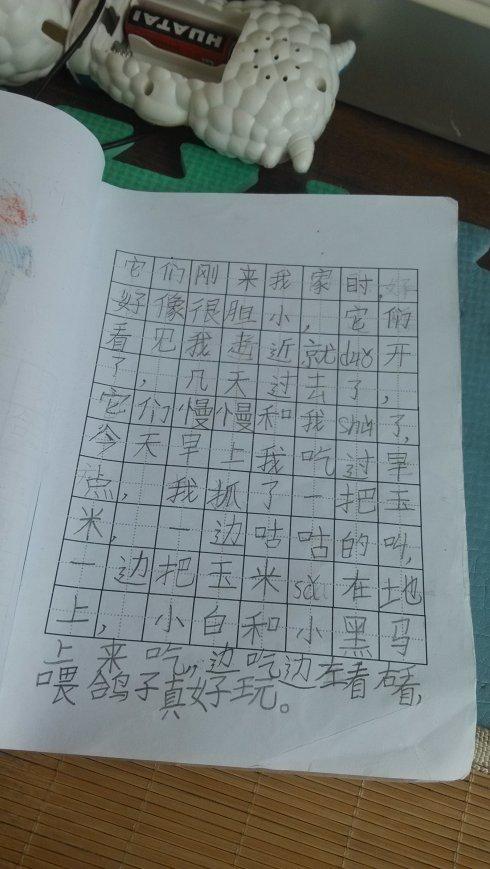 HUATAI
它们刚来我家时,好
好像很胆小,它们
看见我走近就duǒ开
了,几天过去了,
它们慢慢和我shú了,
今天早上我吃过早
点,我抓了一把玉
米,一边咕咕的叫,
一边把玉米sǎ在地
上,小白和小黑马
上来吃,边吃边左看右看,
喂鸽子真好玩。